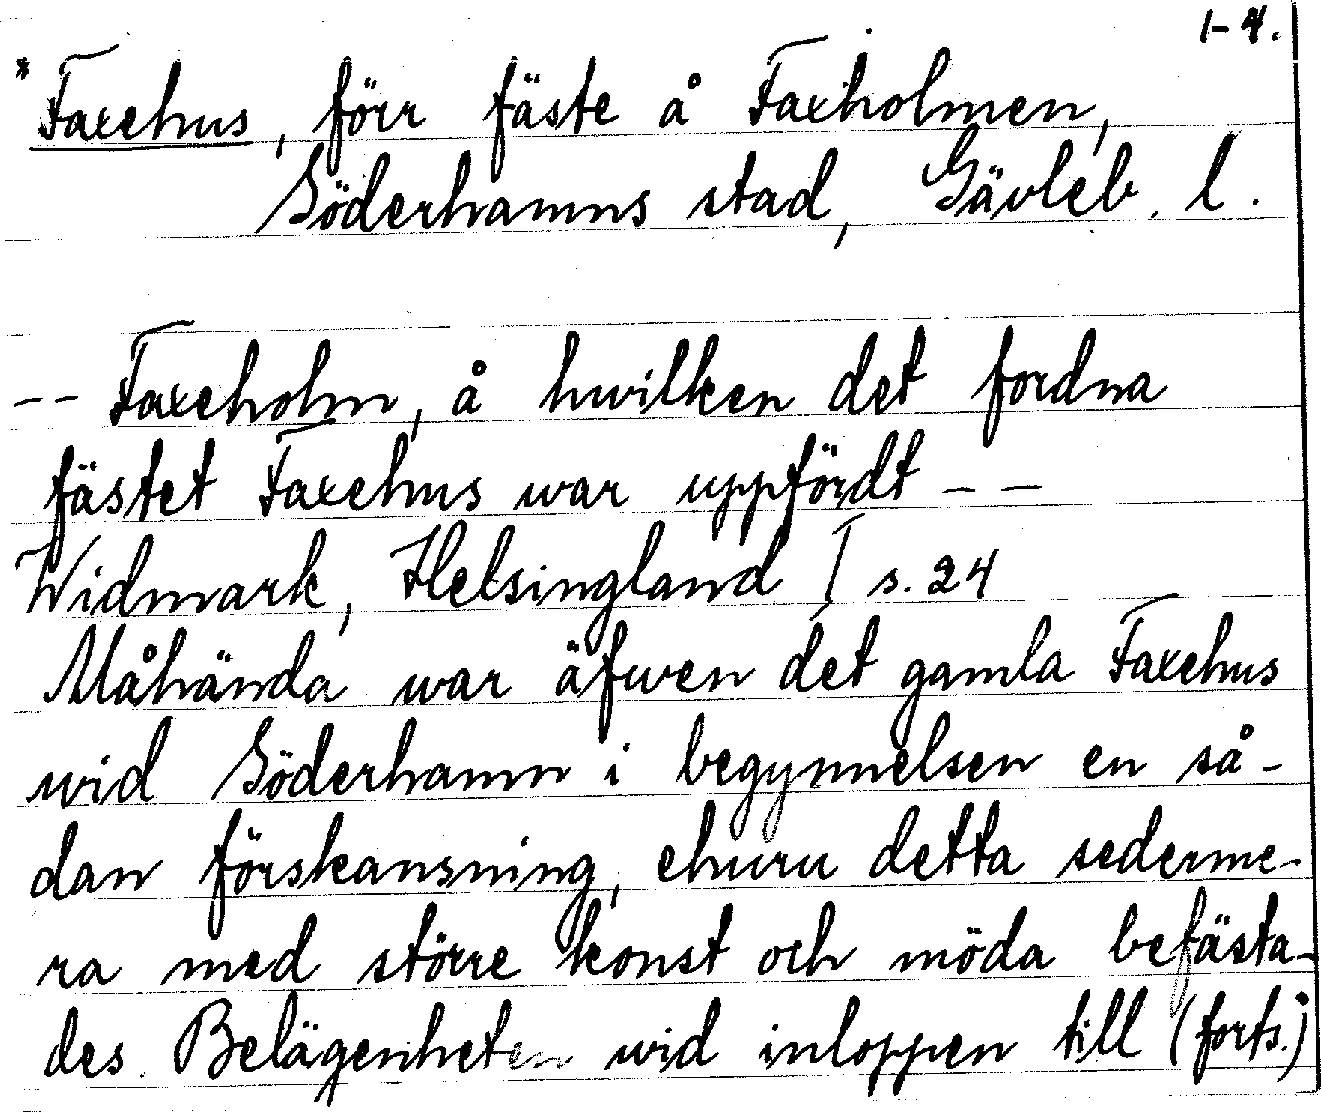 1-4.
*Faxehus, förr fäste å Faxholmen,
Söderhamns stad, Gävleb. l.
-- Faxeholm, å hwilken det fordna
fästet Faxehus war uppfördt --
Widmark, Helsingland I s. 24
Måhända war äfwen det gamla Faxehus
wid Söderhamn i begynnelsen en så-
dan förskansning, ehuru detta sederme-
ra med större konst och möda befästa-
des. Belägenheten wid inloppen till (forts.)